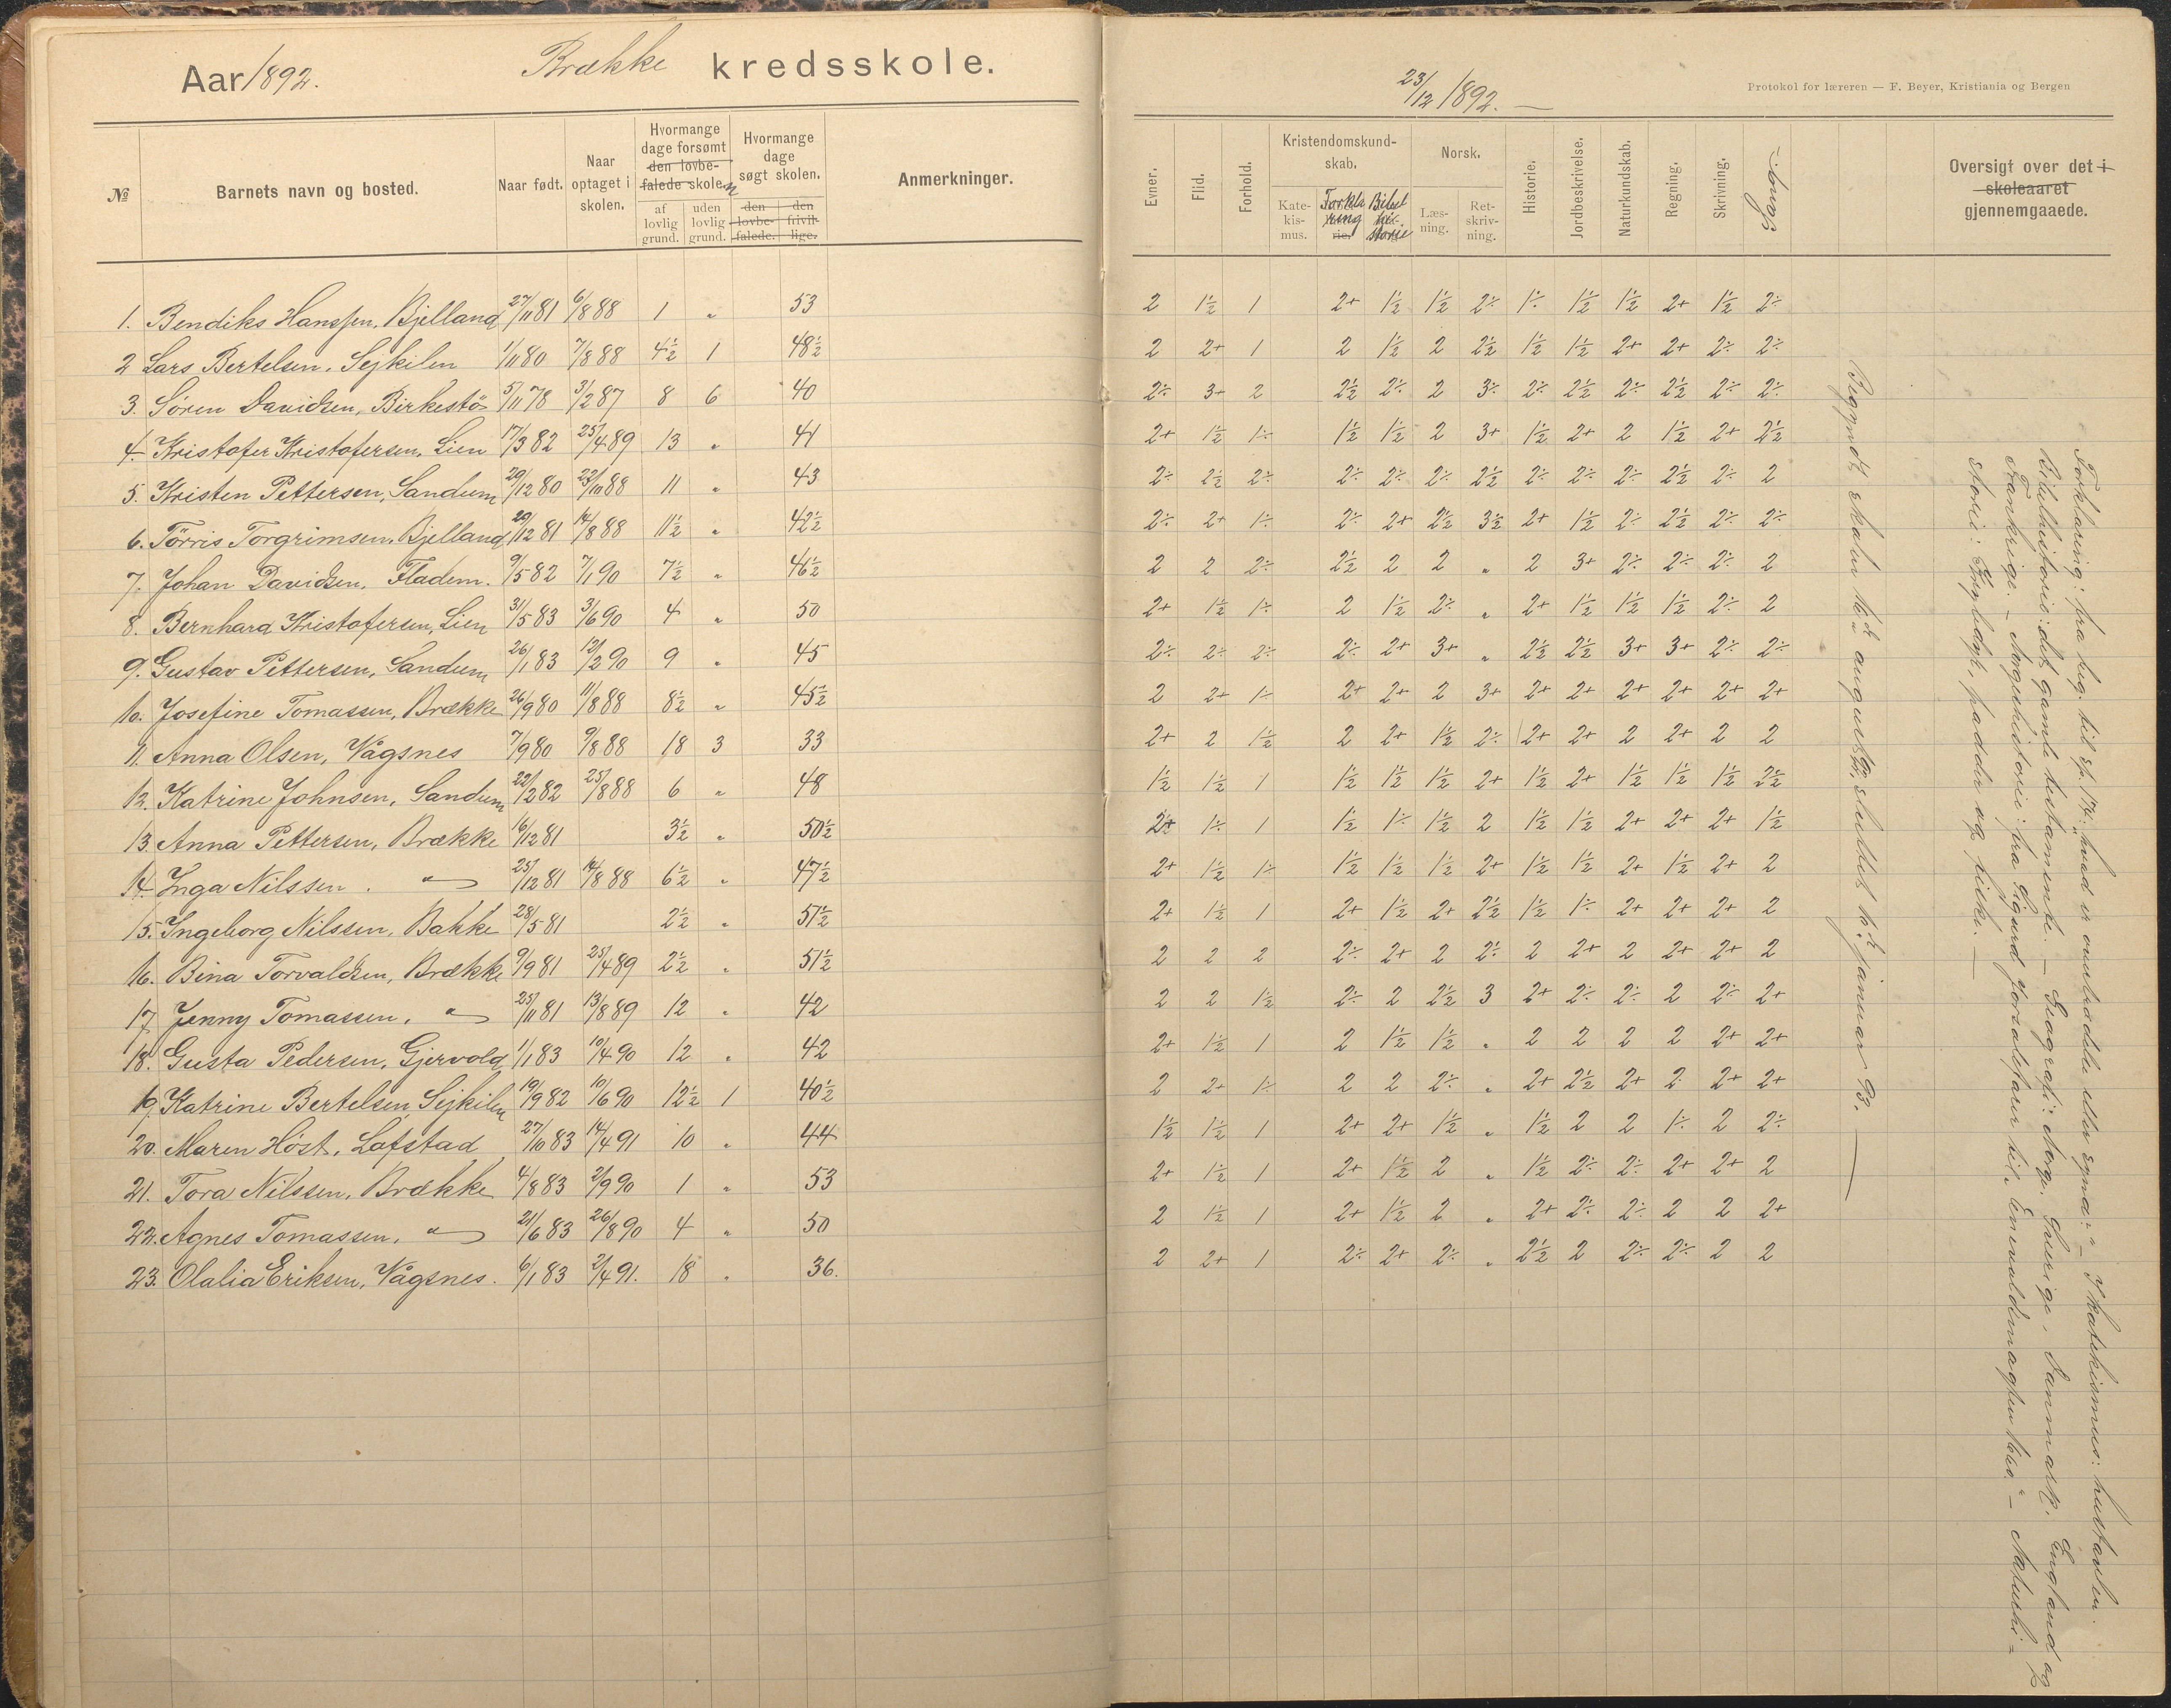 Aar 1892. Brække kredsskole.
№ Barnets navn og bosted. Naar født. Naar optaget i skolen. Hvormange dage forsømt den lovbefalede skolen af lovlig grund. uden lovlig grund. Hvormange dage søgt skolen. den lovbefalede. den frivillige. Anmerkninger.
1. Bendiks Hanssen, Bjelland 27/11 81 6/8 88 1 " 53
2 Lars Bertelsen, Sejkilen 1/11 80 7/8 88 4½ 1 48½
3. Søren Davidsen, Birkestö 5/11 78 3/2 87 8 6 40
4. Kristofer Kristofersen, Lien 17/3 82 25/4 89 13 " 41
5. Kristen Pettersen, Sandum 20/12 80 22/10 88 11 " 43
6. Törris Torgrimsen, Bjelland 20/12 81 14/8 88 11½ " 42½
7. Johan Davidsen, Fladem. 9/5 82 7/1 90 7½ " 46½
8. Bernhard Kristofersen, Lien 31/5 83 3/6 90 4 " 50
9. Gustav Pettersen, Sandum 26/1 83 12/2 90 9 " 45
10. Josefine Tomassen, Brække 26/9 80 11/8 88 8½ " 45½
11. Anna Olsen, Vågsnes 7/9 80 9/8 88 18 3 33
12. Katrine Johnsen, Sandum 22/2 82 25/8 88 6 " 48
13. Anna Pettersen, Brække 16/12 81 3½ " 50½
14. Inga Nilssen . " 25/12 81 14/8 88 6½ " 47½
15. Ingeborg Nilssen, Bakke 28/5 81 2½ " 51½
16. Bina Torvaldsen, Brække 9/9 81 25/4 89 2½ " 51½
17. Jenny Tomassen, " 25/11 81 13/8 89 12 " 42
18. Gusta Pedersen, Gjervold 1/1 83 10/4 90 12 " 42
19. Katrine Bertelsen, Sejkilen 19/9 82 10/6 90 12½ 1 40½
20. Maren Höst, Lofstad 27/10 83 14/4 91 10 " 44
21. Tora Nilssen, Brække 4/8 83 2/9 90 1 " 53
22. Agnes Tomassen, " 21/6 83 26/8 90 4 " 50
23. Olalia Eriksen, Vågsnes. 6/1 83 2/4 91. 18 " 36.
23/12 1892. —
Protokol for læreren — F. Beyer, Kristiania og Bergen
Evner. Flid. Forhold. Kristendomskundskab. Katekismus. Forklaring Bibelhistorie Norsk. Læsning. Retskrivning. Historie. Jordbeskrivelse. Naturkundskab. Regning. Skrivning. Sang. Oversigt over det i skoleaaret gjennemgaaede.
2 1½ 1 2+ 1½ 1½ 2÷ 1÷ 1½ 1½ 2+ 1½ 2÷
2 2+ 1 2 1½ 2 2½ 1½ 1½ 2+ 2+ 2÷ 2÷
2÷ 3+ 2 2½ 2÷ 2 3÷ 2÷ 2½ 2÷ 2½ 2÷ 2÷
2+ 1½ 1÷ 1½ 1½ 2 3+ 1½ 2+ 2 1½ 2+ 2½
2÷ 2½ 2÷ 2÷ 2÷ 2÷ 2½ 2÷ 2÷ 2÷ 2½ 2÷ 2
2÷ 2+ 1÷ 2÷ 2+ 2½ 3½ 2+ 1½ 2÷ 2½ 2÷ 2÷
2 2 2÷ 2½ 2 2 " 2 3+ 2÷ 2÷ 2÷ 2
2+ 1½ 1÷ 2 1½ 2÷ " 2+ 1½ 1½ 1½ 2÷ 2
2÷ 2÷ 2÷ 2÷ 2+ 3+ " 2½ 2½ 3+ 3+ 2÷ 2÷
2 2+ 1÷ 2+ 2+ 2 3+ 2+ 2+ 2+ 2+ 2+ 2+
2+ 2 1½ 2 2+ 1½ 2÷ 2+ 2+ 2 2+ 2 2
1½ 1½ 1 1½ 1½ 1½ 2+ 1½ 2+ 1½ 1½ 1½ 2½
2+ 1÷ 1 1½ 1÷ 1½ 2 1½ 1½ 2+ 2+ 2+ 1½
2+ 1½ 1÷ 1½ 1½ 1½ 2+ 1½ 1½ 2+ 1½ 2+ 2
2+ 1½ 1 2+ 1½ 2+ 2½ 1½ 1÷ 2+ 2+ 2+ 2
2 2 2 2÷ 2+ 2 2÷ 2 2+ 2 2+ 2+ 2
2 2 1½ 2÷ 2 2½ 3 2+ 2÷ 2÷ 2 2÷ 2+
2+ 1½ 1 2 1½ 1½ " 2 2 2 2 2+ 2+
2 2+ 1÷ 2 2 2÷ " 2+ 2½ 2+ 2 2+ 2+
1½ 1½ 1 2+ 2+ 1½ " 1½ 2 2 1÷ 2 2÷
2+ 1½ 1 2+ 1½ 2 " 1½ 2÷ 2÷ 2+ 2+ 2
2 1½ 1 2+ 1½ 2 " 2+ 2÷ 2÷ 2 2 2+
2 2+ 1 2÷ 2+ 2÷ " 2½ 2 2÷ 2÷ 2 2
Forklaring: fra beg. til sp. 174: "hvad er onde eller synd". — I katekismus: hustavlen.
Bibelhistorie: det gamle testamente. — Geografi: Norge, Sverige, Danmark, England og
Frankrige. — Norgeshistorie: fra Sigurd Jorsalfarer til "Enevoldsmagten 1660" — Naturhi=
storie: Krybdyr, padder og fiske. —
Begyndt skolen 16de august 92, sluttet 16de januar 93. —